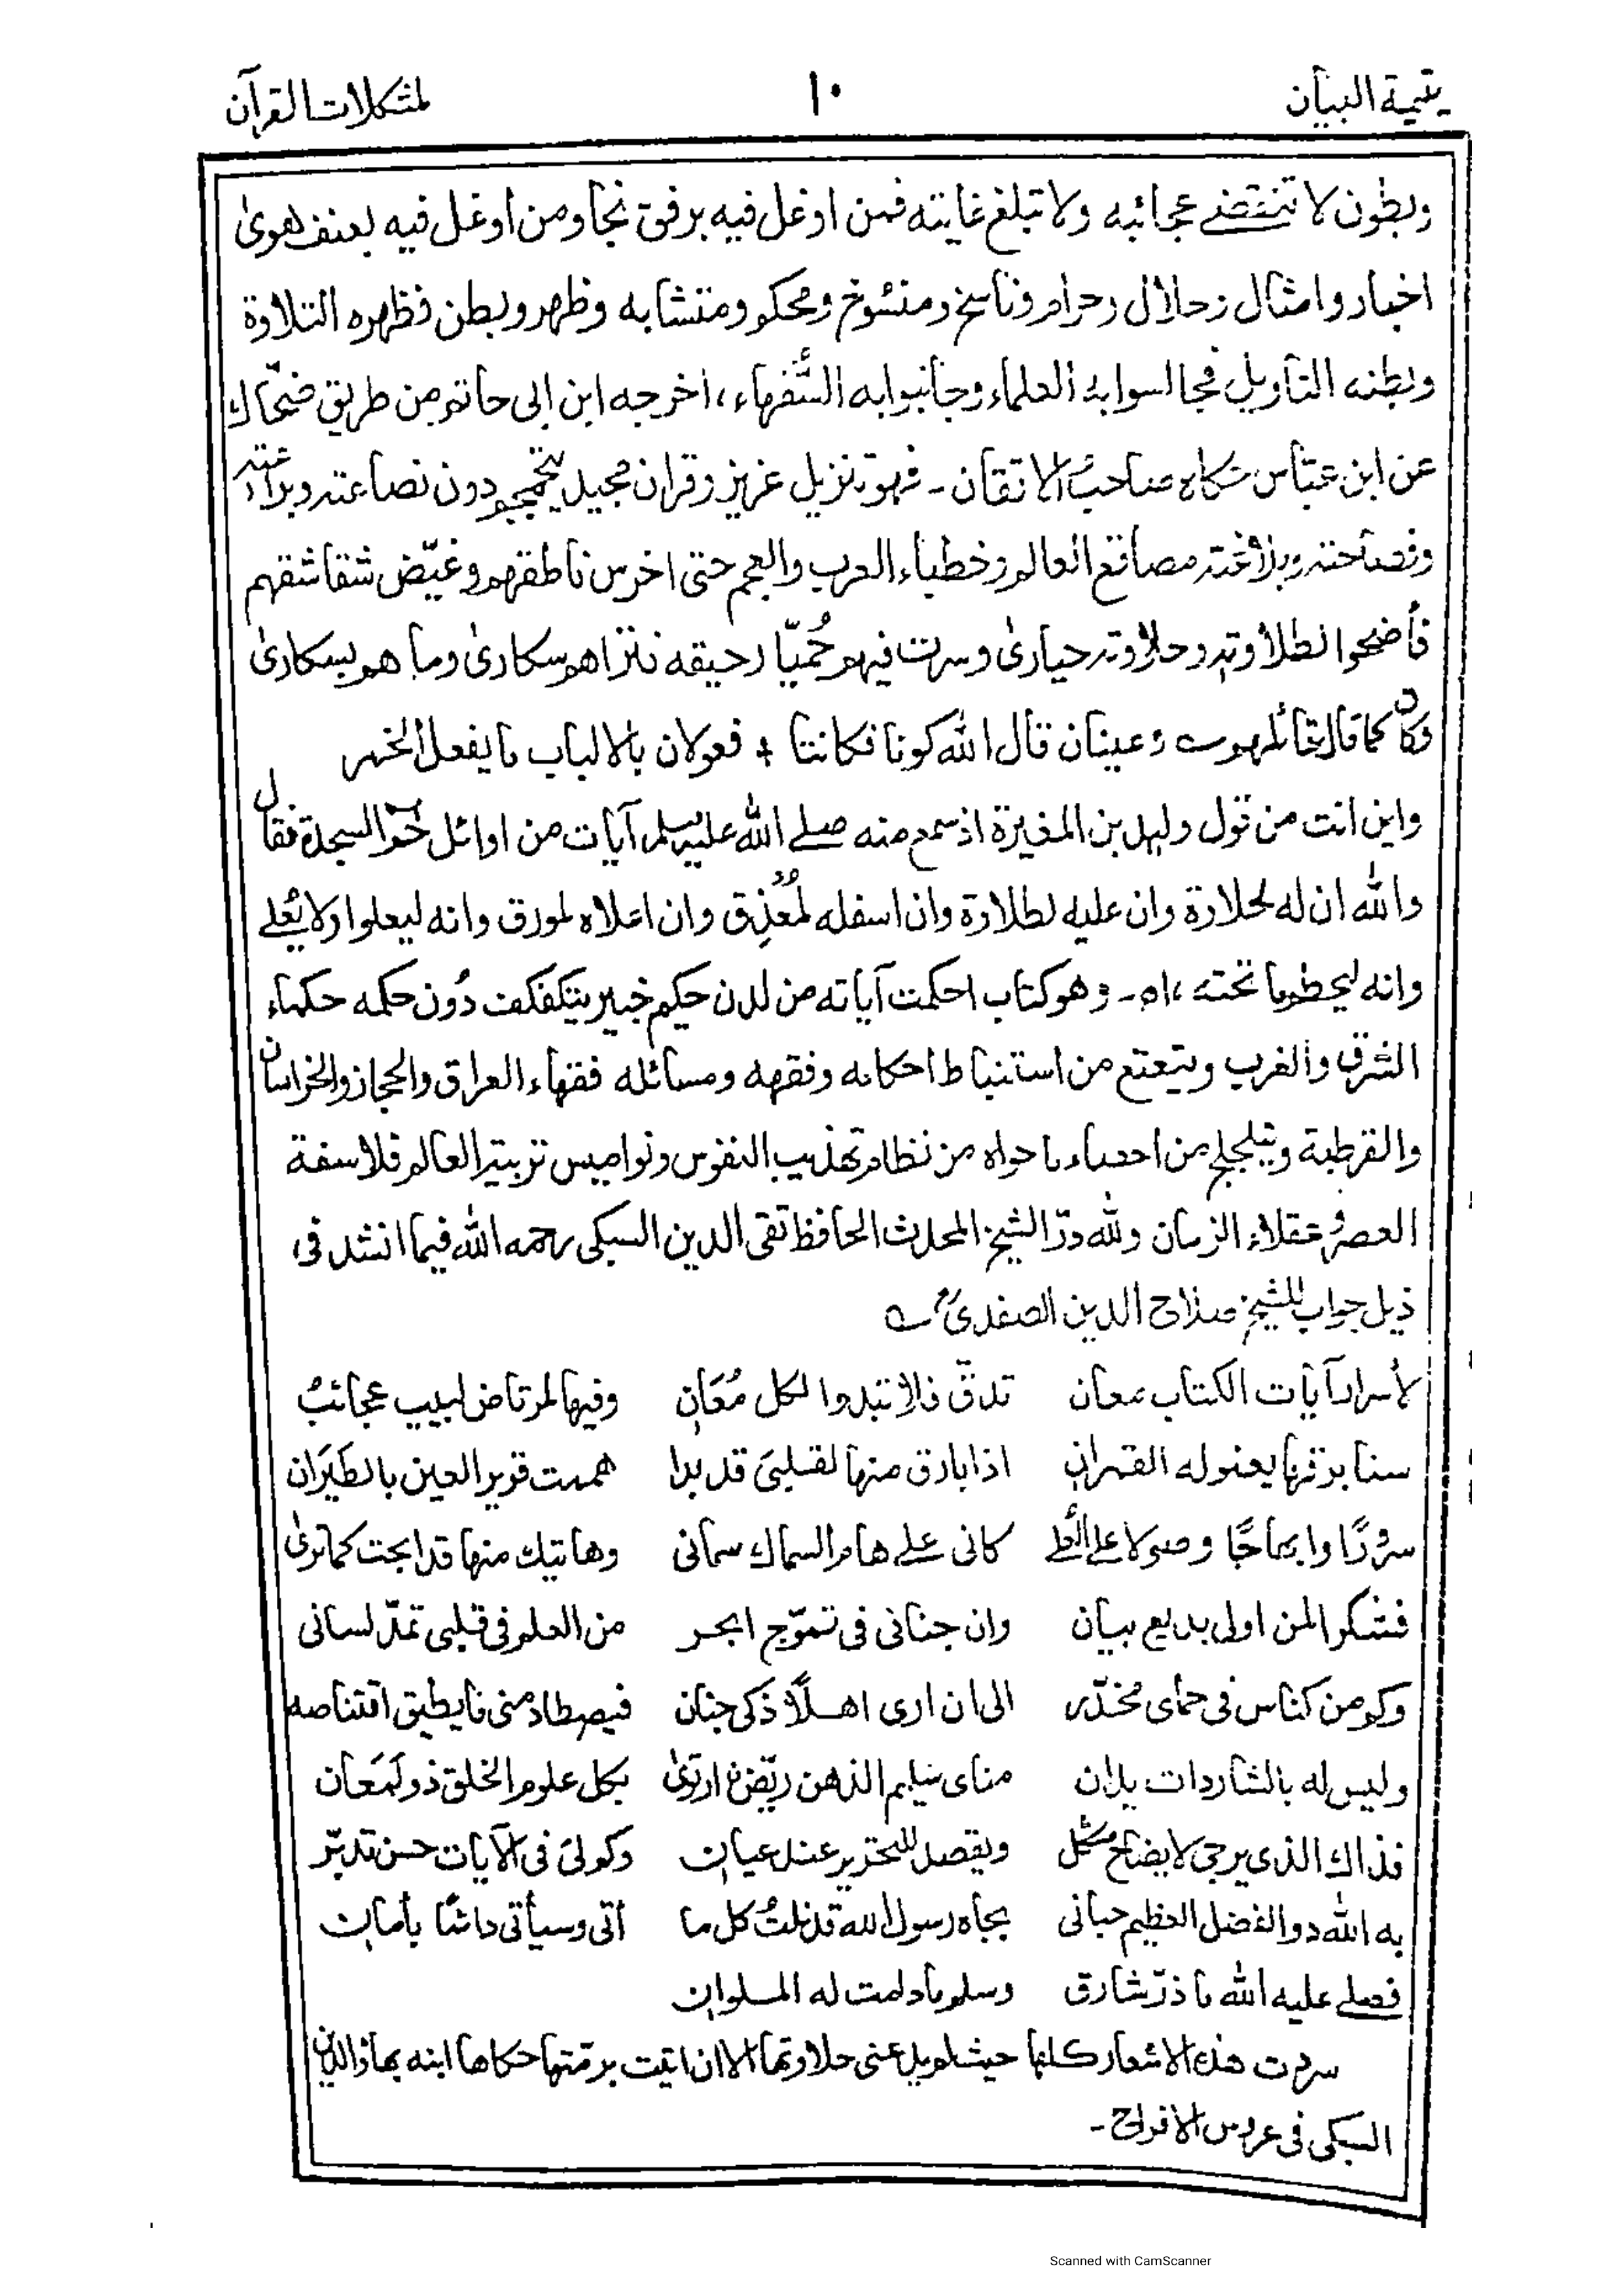 يتيمة البيان
١٠
لمشكلات القرآن
وبطون لا تنقضے عجائبه ولا تبلغ غايته فمن اوغل فيه برفق نجا ومن اوغل فيه بعنف هوىٰ
اخبار وامثال وحلال وحرام وناسخ ومنسوخ ومحكم ومتشابه وظهر وبطن فظهره التلاوة
وبطنه التاويل فجالسوا به العلماء وجانبوا به السُّفهاء، اخرجه ابن ابى حاتم من طريق ضحّاك
عن ابن عبّاس حكاه صاحبُ الاتقان ـ فهو تنزيل عزيز وقران مجيد يتجمجم دون نصاعته وبراعته
وفصاحته وبلاغته مصاقع العالم وخطباء العرب والعجم حتى اخرس ناطقهم وغيّض شقاشقهم
فأضحوا لطلاوته وحلاوته حيارىٰ وسرت فيهم حُميّا رحيقه فتراهم سكارىٰ وما هم بسكارىٰ
وكان كما قال قائلهم ؎ وعينان قال الله كونا فكانتا + فعولان بالالباب ما يفعل الخمر
واين انت من قول وليد بن المغيرة اذ سمع منه صلے الله عليه وسلم آيات من اوائل حٰمٓ السجدة فقال
والله ان له لحلاوة وان عليه لطلاوة وان اسفله لمُعذِق وان اعلاه لمورق وانه ليعلوا ولا يُعلے
وانه ليحطم ما تحته ،اه ـ وهو كتاب احكمت آياته من لدن حكيم خبير يتكفكف دُون حكمه حكماء
الشرق والغرب ويتعتع من استنباط احكامه وفقهه ومسائله فقهاء العراق والحجاز والخراسان
والقرطبة ويتلجلج من احصاء ما حواه من نظام تهذيب النفوس ونواميس تربية العالم فلاسفة
العصر وعقلاء الزمان ولله درّ الشيخ المحدث الحافظ تقى الدين السبكى رحمه الله فيما انشد فى
ذيل جواب للشيخ صلاح الدين الصفدى ؒ ؎
لأسرار آيات الكتاب معان تدقّ فلا تبدوا لكل مُعَانِ وفيها لمرتاض لبيب عجائبُ
سنا برقها يعنو له القمران اذا بارق منها لقلبىَ قد بدا هممت قرير العين بالطيَران
سرُورًا وابهاجًا وصولا على العُلے كانى علے هام السماك سمانى وهاتيك منها قد ابحت كما ترىٰ
فشكرا لمن اولى بديع بيان وان جنانى فى تموّج ابحر من العلم فى قلبى تمدّ لسانى
وكم من كناس فى حماى مخدّر الى ان ارى اهلًا ذكى جنان فيصطاد منى ما يطيق اقتناصه
وليس له بالشاردات يدان مناى سليم الذهن ريّض ارتوىٰ بكل علوم الخلق ذو لَمَعَان
فذاك الذى يرجى لايضاح مشكل ويقصد للتحرير عند عيان وكم لىَ فى الآيات حسن تدبّر
به الله ذو الفضل العظيم حبانى بجاه رسول الله قد نلتُ كل ما أتى وسيأتى دائمًا بأمان
فصلے عليه الله ما ذرّ شارق وسلم ما دامت له الملوان
سردت هذه الاشعار كلها حيث لم يدعنى حلاوتها الا ان اتيت برمّتها حكاها ابنه بهاء الدين
السبكى فى عروس الافراح ـ
Scanned with CamScanner